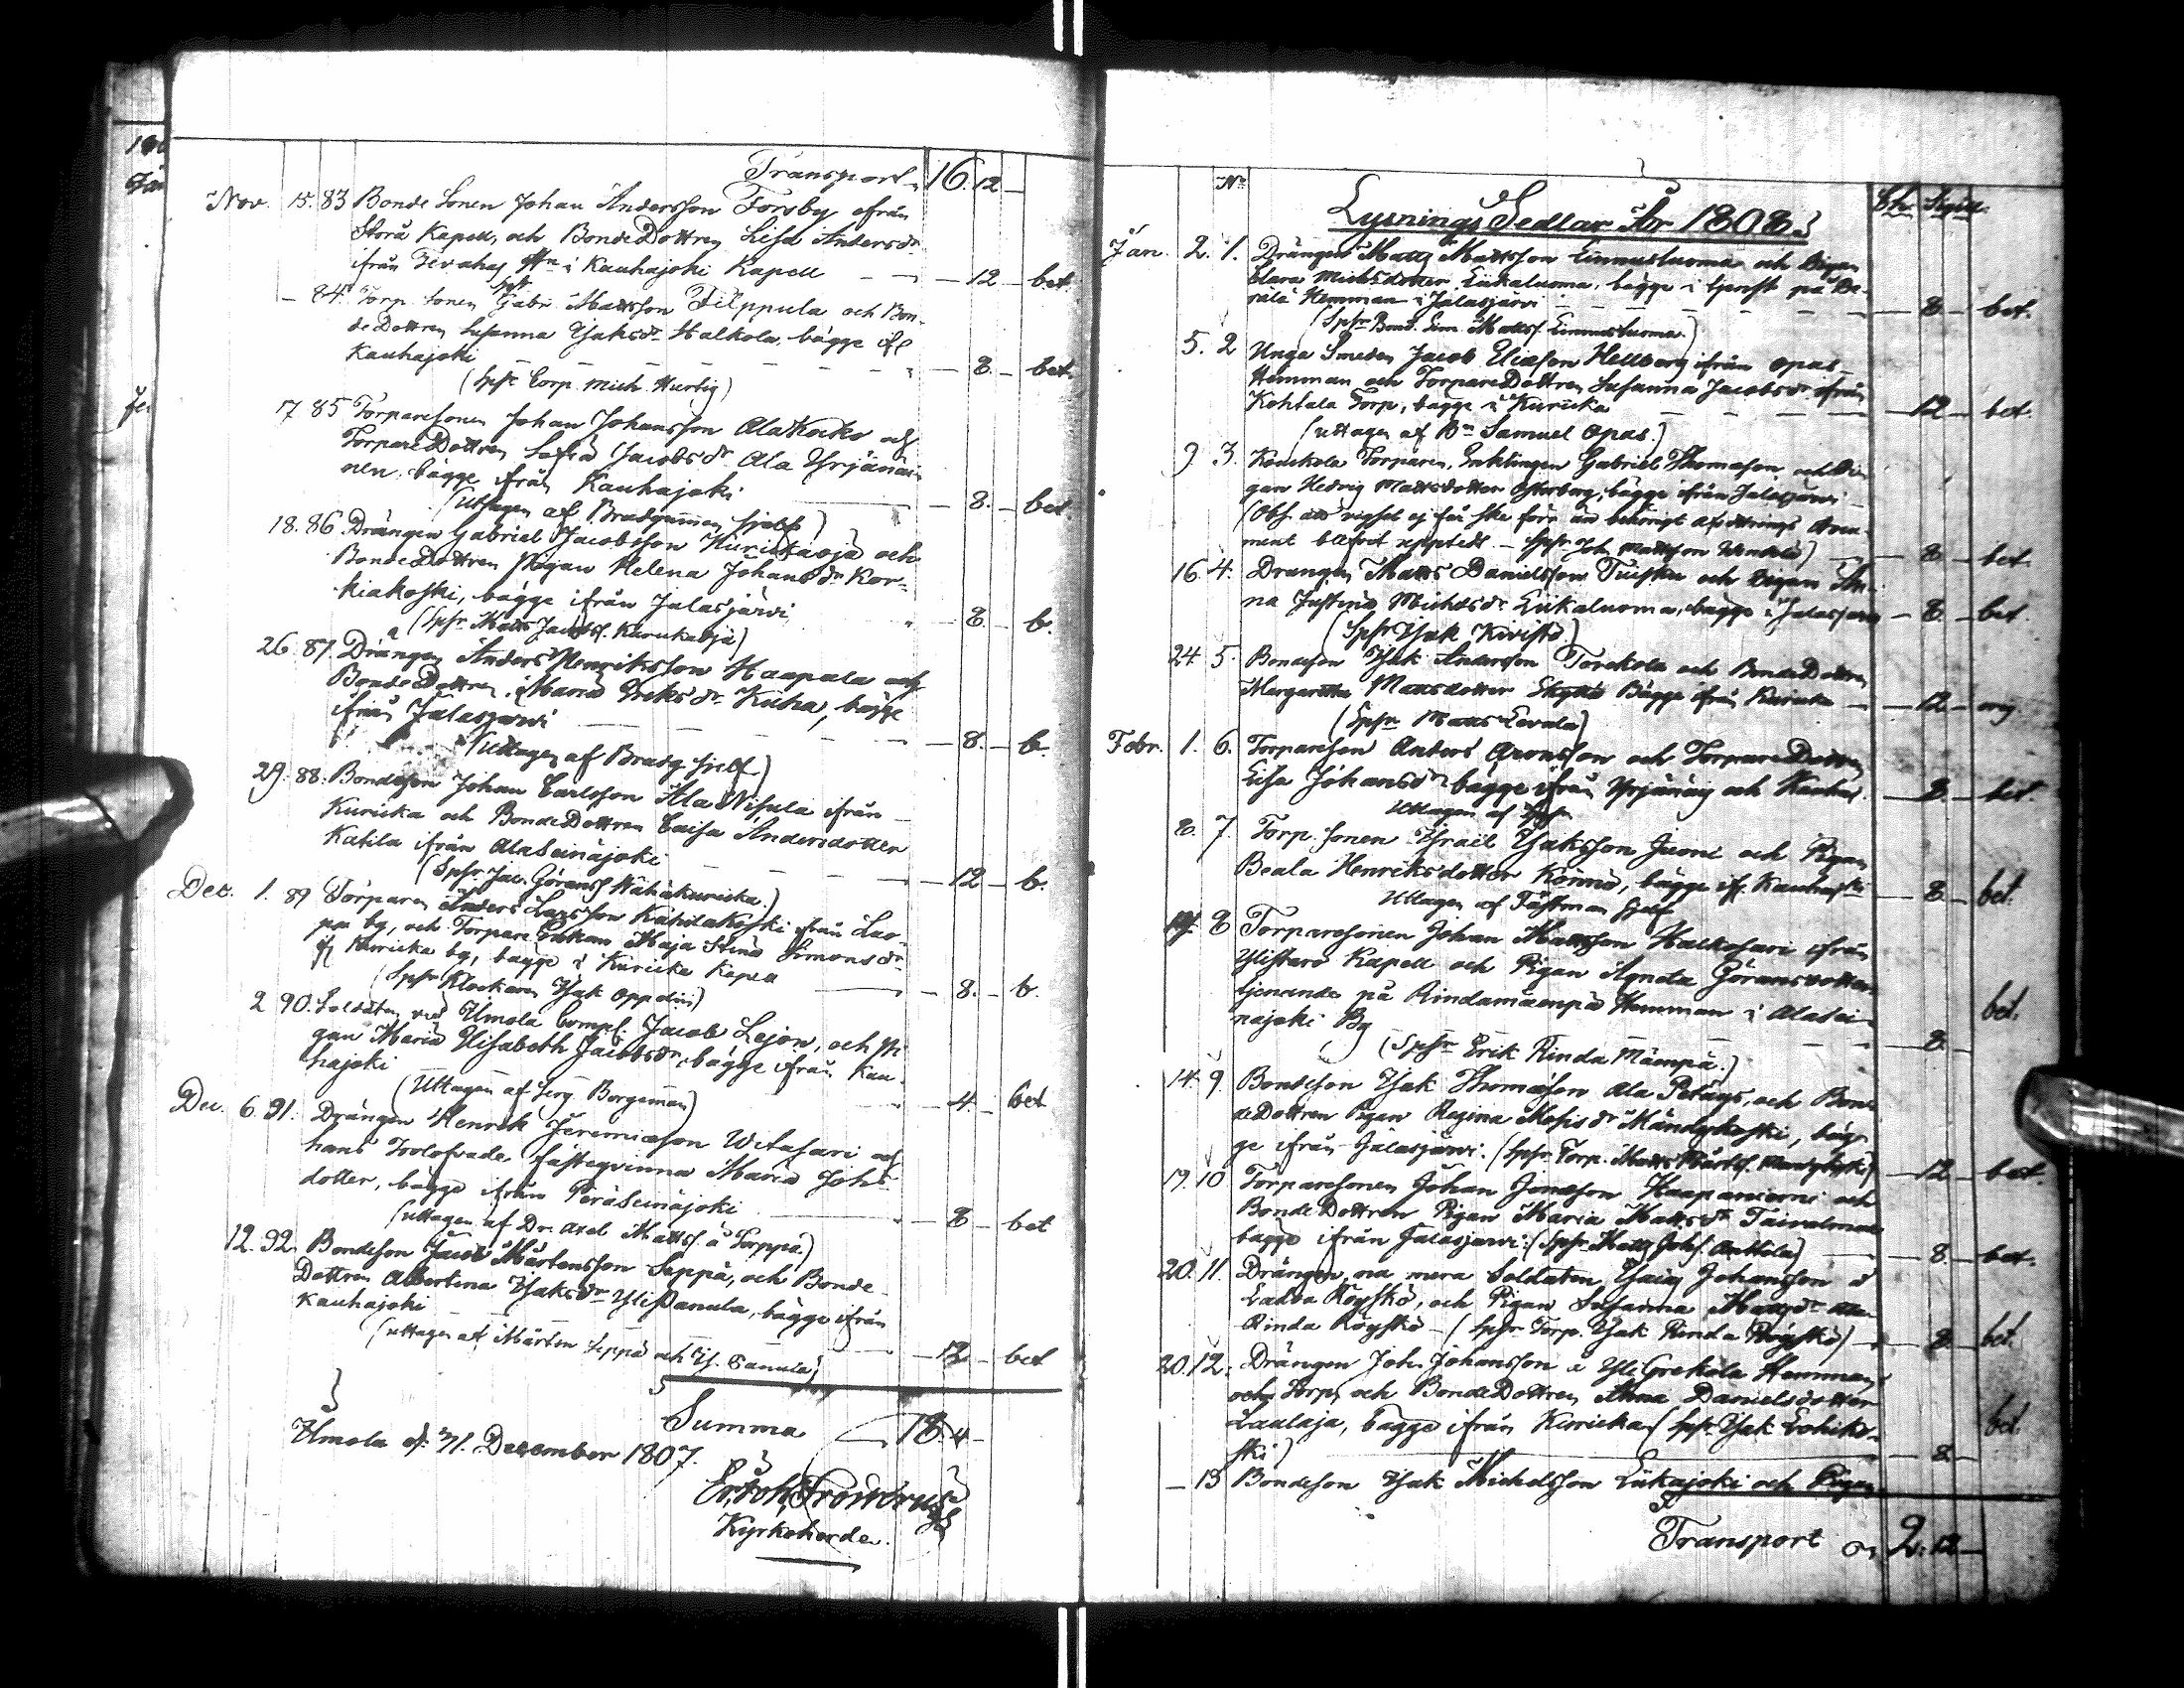 Transport 16. 12 –
Nov. 15. 83 Bonde Sonen Johan Andersson Forsby ifrån
Storå Kapell, och Bonde Dottren Lisa Andersdr
ifrån i Kauhajoki Kapell — 12 – bet.
– 84. Torp. Sonen Gabr. Mattsson Filppula och Bon-
de Dottren Susanna Isaksdr Halkola, bägge ifr.
Kauhajoki — 8. – bet.
(Spr Corp. Mich. Hurtig)
17 85 Torparesonen Johan Johansson Ala Koko och
Torpare Dottren Sofia Jacobsdr Ala Yrjänäi-
nen, bägge ifrån Kauhajoki — 8. – bet.
(Uttagen af Brudgummen sjelf)
18. 86. Drängen Gabriel Jacobsson Kurickaoja och
Bonde Dottren Pigan Helena Johansdr Kor-
kiakoski, bägge ifrån Jalasjärvi — 8. – b.
(Spr Matts Jacobss. Kurickaoja)
26. 87. Drängen Anders Henriksson Haapala och
Bonde Dottren Maria Eriksdr Kuha, bägge
ifrån Jalasjärvi — 8. – b.
(Uttagen af Brudg. sjelf)
29. 88. Bondeson Johan Carlsson Ala Nisula ifrån
Kuricka och Bonde Dottren Caisa Andersdotter
Katila ifrån Ala Seinäjoki — 12 – b.
(Spr Jac. Göranss. Wähäkuricka.)
Dec. 1. 89 Torparen Anders Larsson ifrån Luo-
pa by, och Torpare Enkan Maja Stina Simonsdr
ifr Kuricka by, bägge i Kuricka Kapell — 8. – b.
(Spr Klockaren Isak Oppelin)
2 90. Soldaten vid Ilmola Comp. Jacob Lejon, och Pi-
gan Maria Elisabeth Jacobsdr, bägge ifrån Kau-
hajoki — 4. – bet
(Uttagen af Serg. Borgeman)
Dec. 6. 91. Drängen Henrik Jeremiasson Witasari och
hans Trolofvade fästeqvinna Maria Johs-
dotter, bägge ifrån Peräseinäjoki — 8 – bet
(uttagen af Dr. Axel Mattss. å Torppa)
12. 92. Bondeson Jacob Mårtensson Seppä, och Bonde
Dottren Albertina Isaksdr Yli Panula, bägge ifrån
Kauhajoki — 12 – bet
(uttagen af Mårten Seppä och Is. Panula)
Summa 18. 4 –
Ilmola d. 31. December 1807.
Er. Joh. Frosterus
Kyrkoherde.
No
Lysnings Sedlar för 1808.
Jan. 2. 1. Drängen Matts Mattsson Linnusluoma och Pigan
Clara Michsdotter Liikaluoma, bägge i tjenst på
Hemman i Jalasjärvi — 8. – bet.
(Spr Bond. Sim. Mattss. Linnusluoma.)
5. 2 Unga Smeden Jacob Eliasson Hellberg ifrån Opas
Hemman och Torpare Dottren Susanna Jacobsdr ifrån
Kohtala Torp, bägge i Kuricka — 12 – bet.
(uttagen af Bn Samuel Opas.)
9 3. Koukkola Torparen, Enklingen Gabriel Thomasson och Pi-
gan Hedvig Mattsdotter Österberg, bägge ifrån Jalasjärvi
(Obs. att vigsel ej får ske förr än behörigt afvittrings Docu-
ment blifvit uppteedt. – Spr Joh. Mattsson) — 8. – bet.
16. 4. Drängen Matts Danielsson Tuisku och Pigan An-
na Justina Michelsdr Liikaluoma, bägge i Jalasjärvi – 8. – bet.
(Spr Isak Kivistö.)
24 5. Bondeson Isak Andersson Torckola och Bonde Dottren
Margaretha Mattsdotter Skyttä bägge ifrån Kuricka — 12 –
(Spr Matts Levala)
Febr. 1. 6. Torpareson Anders Aronsson och Torpare Dottren
Lisa Johansdr bägge ifrån Yrjänäis och Kauhaj. — 8. – bet.
Uttagen af
8. 7. Torp. Sonen Israël Isaksson Juoni och Pigan
Beata Henriksdotter Könnö, bägge ifr. Kauhajoki — 8. – bet.
Uttagen af Fästman sjelf
8 Torparesonen Johan Mattsson Halkosari ifrån
Ylistaro Kapell och Pigan Agneta Göransdotter
tjenande på Rindamäenpä Hemman i Alasei-
näjoki By — 8. bet.
(Spr Erik Rinda Mäenpä.)
14. 9. Bondeson Isak Thomasson Ala Petäys, och Bon-
de Dottren Pigan Regina Mosisdr Mändykoski, bäg-
ge ifrån Jalasjärvi. (Spr Torp. Matts Mårtss. Mändykoski) – 12 – bet.
19. 10. Torparesonen Johan Jonasson Haapaniemi och
Bonde Dottren Pigan Maria Mattsdr Taivalmaa
bägge ifrån Jalasjärvi. (Spr Matts Johss. Anttila) — 8. – bet.
20. 11. Drängen, na mera Soldaten Isaac Johansson å
Ladva Röyskö, och Pigan Susanna Mattsdr
Rinda Röyskö – (Spr Torp. Isak Rinda Röyskö) — 8. – bet.
20. 12. Drängen Joh. Johansson å Yli Grekola Hemman
och Torp, och Bonde Dottren Anna Danielsdotter
Laulaja, bägge ifrån Kuricka (Spr Isak Lohiko- bet.
ski) — 8. –
– 13 Bondeson Isak Michelsson Liikajoki och Pigan
Transport 2. 12 –